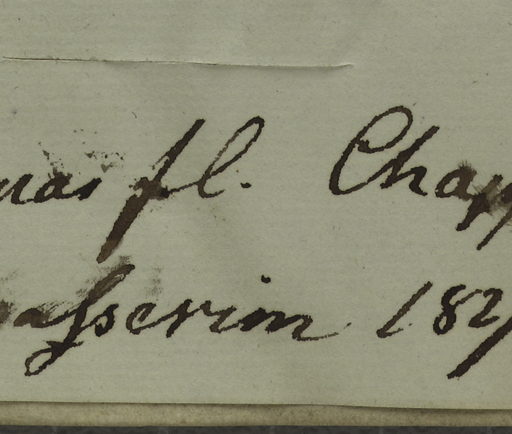 nas fl. Chap
asserim 182